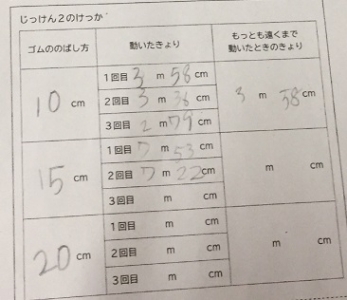 じっけん2のけっか
ゴムののばし方 動いたきょり もっとも遠くまで動いたときのきょり
10 cm
1回目 3 m 58 cm
2回目 3 m 36 cm
3回目 2 m 79 cm
3 m 58 cm
15 cm
1回目 7 m 53 cm
2回目 7 m 22 cm
3回目 m cm
m cm
20 cm
1回目 m cm
2回目 m cm
3回目 m cm
m cm